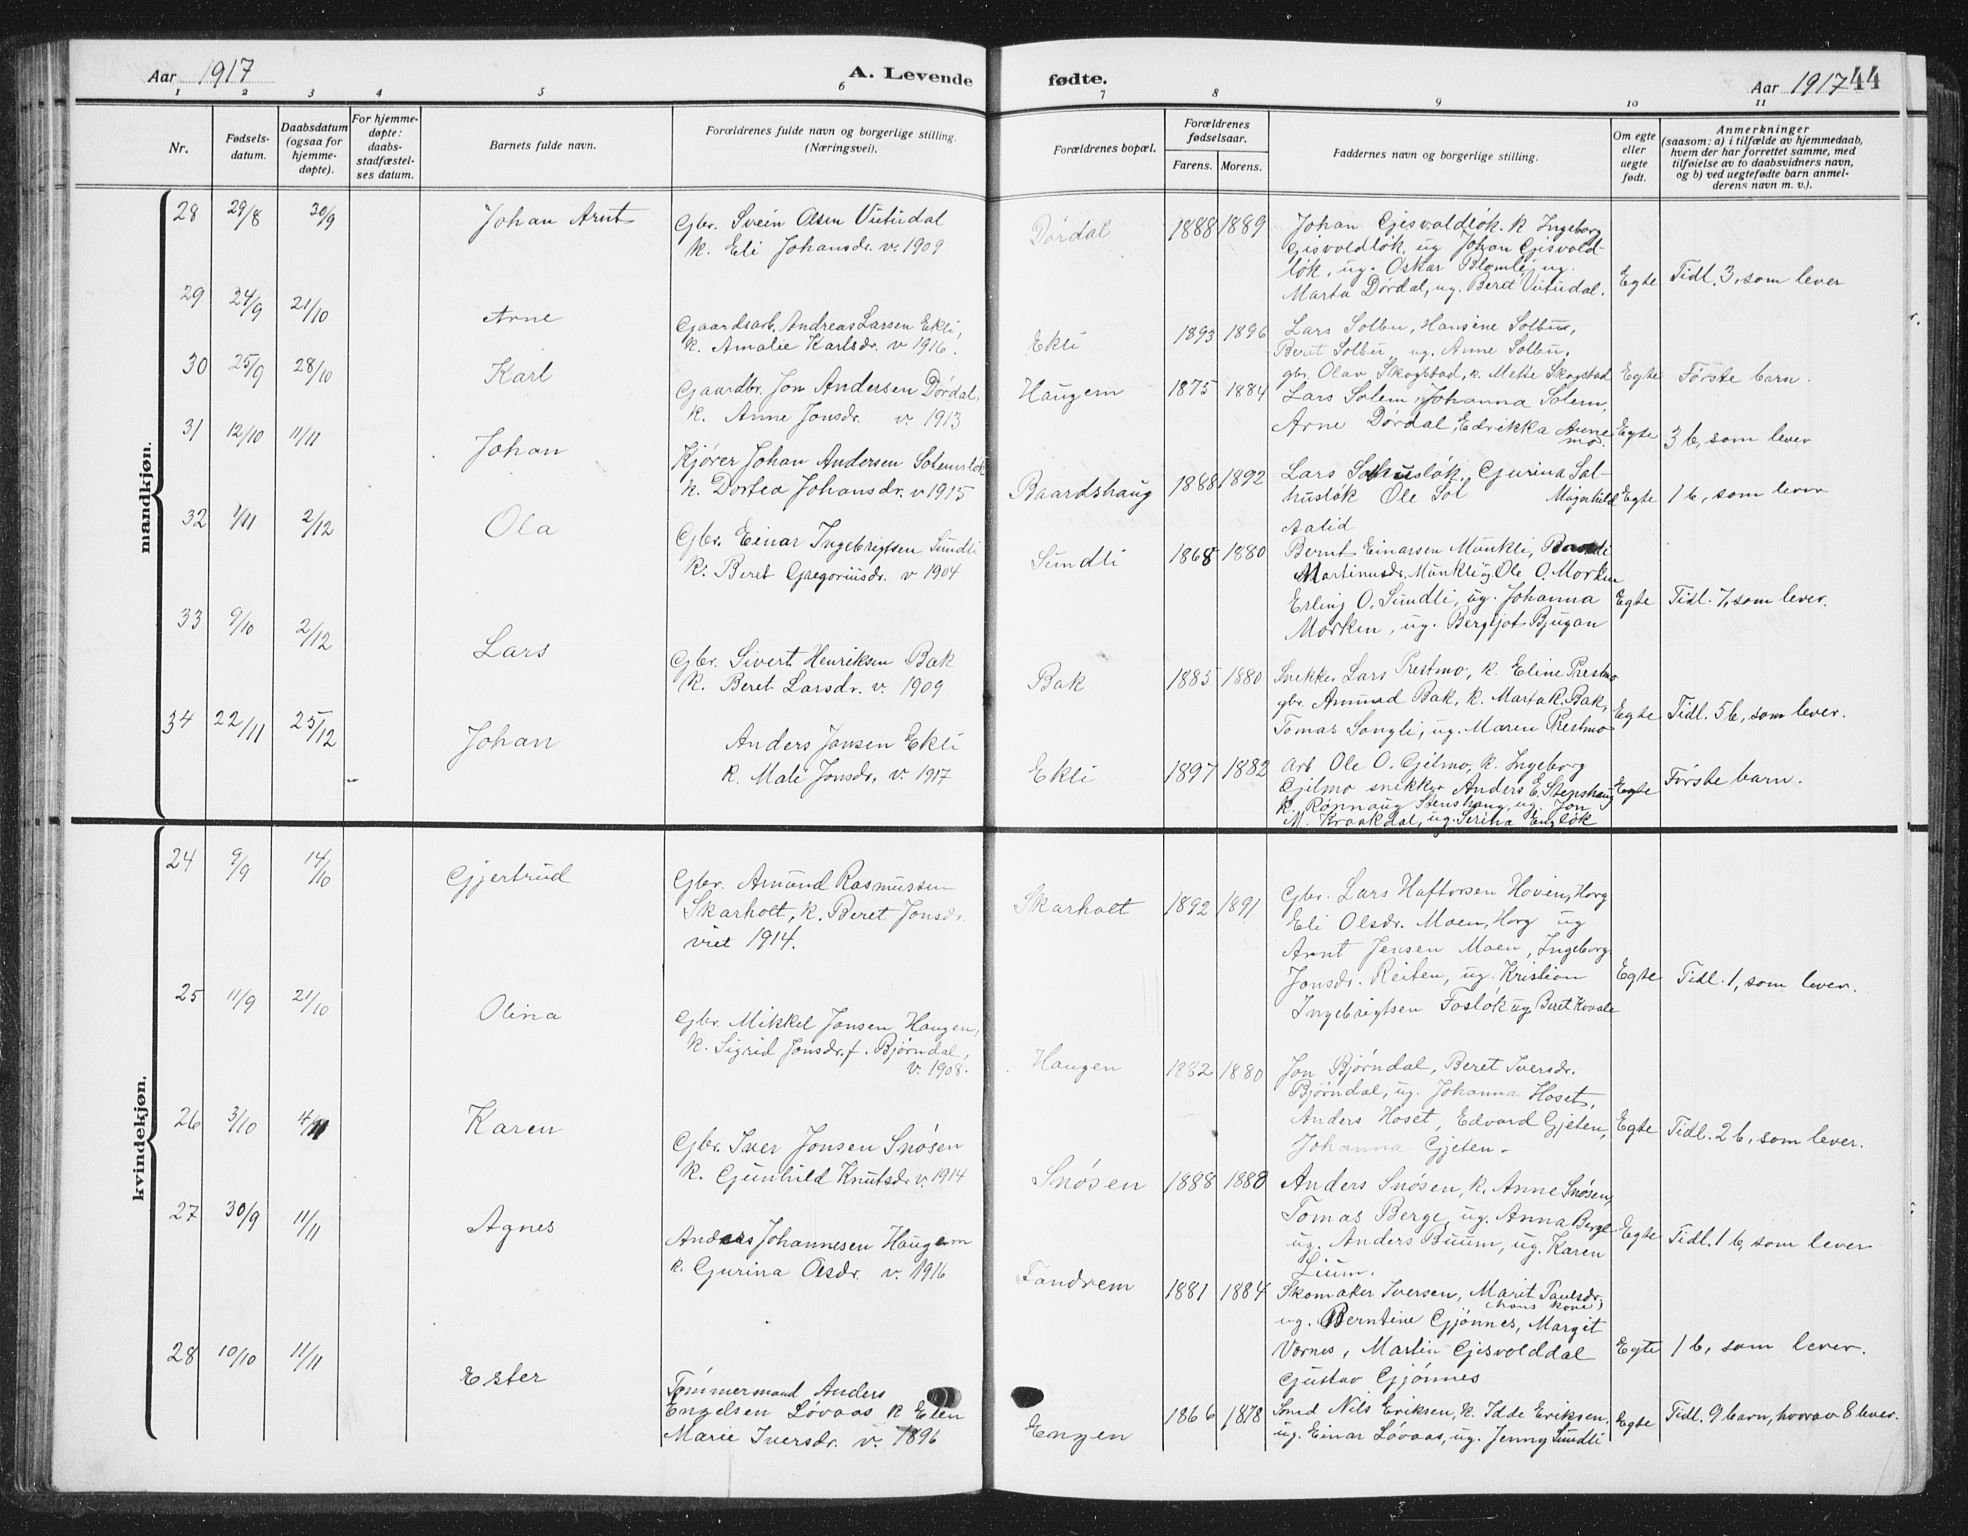 Aar 1917
A. Levende fødte.
Aar 1917 44
1 2 3 4 5 6 7 8 9 10 11
Nr.
Fødsels-
datum.
Daabsdatum
(ogsaa for
hjemme-
døpte).
For hjemme-
døpte:
daabs-
stadfæstel-
ses datum.
Barnets fulde navn.
Forældrenes fulde navn og borgerlige stilling.
(Næringsvei).
Forældrenes bopæl.
Forældrenes
fødselsaar.
Farens. Morens.
Faddernes navn og borgerlige stilling.
Om egte
eller
uegte
født.
Anmerkninger
(saasom: a) i tilfælde av hjemmedaab,
hvem der har forrettet samme, med
tilføielse av to daabsvidners navn,
og b) ved uegtefødte barn anmel-
derens navn m. v.).
mandkjøn.
28 29/8 30/9 Johan Arnt
Gbr. Svein Olsen Vutudal
k. Eli Johansdr. v. 1909
Dørdal 1888 1889
Johan Gisvoldløk. k Ingeborg
Gisvoldløk, ug Johan Gisvold-
løk, ug. Oskar Blomli, ug.
Marta Dørdal, ug. Beret Vutudal.
Egte Tidl. 3, som lever
29 24/9 21/10 Arne
Gaardsarb. Andreas Larsen Ekli,
k. Amalie Karlsdr. v 1916.
Ekli 1893 1896
Lars Solbu, Hansine Solbu,
Beret Solbu, ug. Anne Solbu.
gbr. Olav Skogstad, k. Mette Skogstad
Egte Første barn.
30 25/9 28/10 Karl
Gaardbr. Jon Andersen Dørdal,
k. Anne Jonsdr. v. 1913
Haugem 1875 1884
Lars Solem, Johanna Solem,
Arne Dørdal, Edrikka Aune
mo.
Egte 3 b, som lever
31 12/10 11/11 Johan
Kjører Johan Andersen Solemsløk
k. Dortea Johansdr. v 1915
Baardshaug 1888 1892
Lars Solhusløk, Gurina Sol-
husløk Ole Sol Magnhild
Aalid
Egte 1 b, som lever
32 1/11 2/12 Ola
Gbr. Einar Ingebrigtsen Sundli
k. Beret Gregoriusdr. v 1904
Sundli 1868 1880
Bernt Einarsen Munkli,
Martinusdr. Munkli, Ole O. Morken
Erling O. Sundli, ug. Johanna
Morken, ug. Bergljot Bjugan
Egte Tidl. 7, som lever.
33 9/10 2/12 Lars
Gbr. Sivert Henriksen Bak
k. Beret Larsdr. v. 1909
Bak 1885 1880
Snekker Lars Prestmo, k. Eline Prestmo
gbr. Amund Bak, k. Marta R. Bak,
Tomas Songli, ug. Maren Prestmo
Egte Tidl. 5 b, som lever.
34 22/11 25/12 Johan
Anders Jonsen Ekli
k. Mali Jonsdr. v. 1917
Ekli 1897 1882
Arb Ole O. Gilmo, k. Ingeborg
Gilmo snikker Anders E. Stenshaug
k. Rønnaug Stenshaug, ug. Jon
M. Kraakdal, ug. Serina Engløk
Egte Første barn.
kvindekjøn.
24 9/9 14/10 Gjertrud
Gbr. Amund Rasmussen
Skarholt, k. Beret Jonsdr.
viet 1914.
Skarholt 1892 1891
Gbr. Lars Haftorsen Hoven, Horg
Eli Olsdr. Moen, Horg ug
Arnt Jensen Moen, Ingeborg
Jonsdr. Reiten, ug. Kristian
Ingebrigtsen Fosløk ug Beret Kvaale
Egte Tidl. 1, som lever.
25 11/9 21/10 Olina
Gbr. Mikkel Jonsen Haugen,
k. Sigrid Jonsdr. f. Bjørndal,
v. 1908.
Haugen 1882 1880
Jon Bjørndal, Beret Iversdr.
Bjørndal, ug. Johanna Hoset,
Anders Hoset, Edvard Gjeten,
Johanna Gjeten.
Egte Tidl. 2 b, som lever.
26 3/10 4/11 Karen
Gbr. Iver Jonsen Snøsen
k. Gunhild Knutsdr v. 1914
Snøsen 1888 1888
Anders Snøsen, k. Anne Snøsen,
Tomas Berge, ug. Anna Berge
ug. Anders Buum, ug. Karen
Lium.
Egte Tidl. 1 b, som lever
27 30/9 11/11 Agnes
Anders Johannesen Haugem
k. Gurina Olsdr. v. 1916
Fandrem 1881 1884
Skomaker Iversen, Marit Paulsdr.
(hans kone)
ug. Berntine Gjønnes, Margit
Værnes, Martin Gisvolddal
Gustav Gjønnes
Egte 1 b, som lever.
28 10/10 11/11 Ester
Tømmermand Anders
Engelsen Løvaas k Elen
Marie Iversdr. v. 1896
Engen 1866 1878
Smed Nils Eriksen, k. Idde Eriksen,
ug. Einar Løvaas, ug. Jenny Sundli
Egte Tidl. 9 barn, hvorav 8 lever.